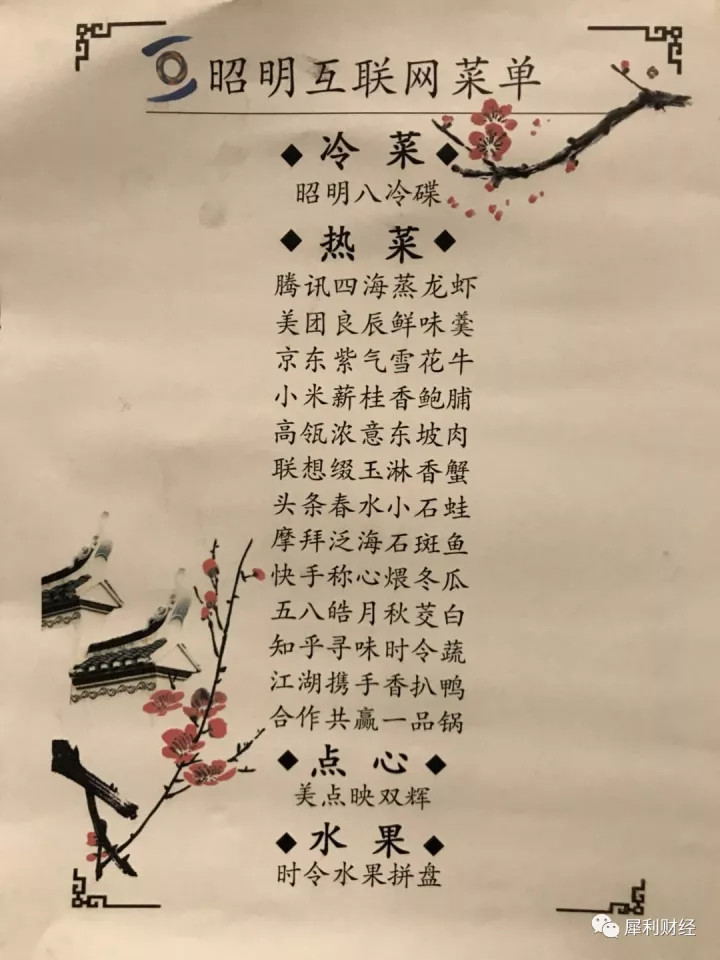 昭明互联网菜单
冷菜
昭明八冷碟
热菜
腾讯四海蒸龙虾
美团良辰鲜味羹
京东紫气雪花牛
小米薪桂香鲍脯
高瓴浓意东坡肉
联想缀玉淋香蟹
头条春水小石蛙
摩拜泛海石斑鱼
快手称心煨冬瓜
五八皓月秋茭白
知乎寻味时令蔬
江湖携手香扒鸭
合作共赢一品锅
点心
美点映双辉
水果
时令水果拼盘
犀利财经